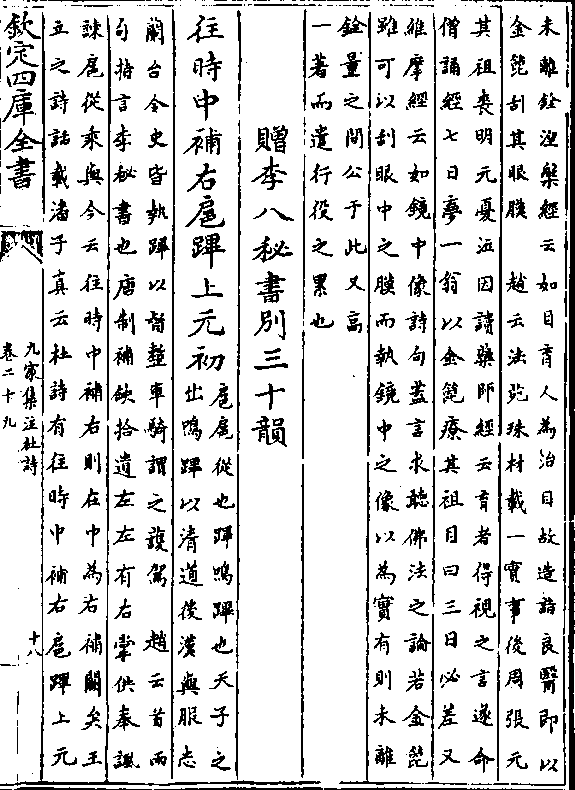 未離銓涅槃經云如目盲人為治目故造詣良醫即以
金篦刮其眼膜　趙云法苑珠林載一實事後周張元
其祖喪明元憂泣因讀藥師經云盲者得視之言遂命
僧誦經七日夢一翁以金篦療其祖目曰三日必差又
維摩經云如鏡中像詩句蓋言求聽佛法之論若金篦
雖可以刮眼中之膜而執鏡中之像以為實有則未離
銓量之間公于此又高
一著而遣行役之累也
贈李八秘書別三十韻
往時中補右扈蹕上元初
扈扈從也蹕鳴蹕也天子之
出鳴蹕以清道後漢輿服志
蘭台令史皆執蹕以督整車騎謂之護駕　趙云首兩
句指言李秘書也唐制補闕拾遺左左有右掌供奉諷
諫扈從乘輿今云往時中補右則在中為右補闕矣王
立之詩話載潘子真云杜詩有往時中補右扈蹕上元
欽定四庫全書
九家集注杜詩
卷二十九
十八